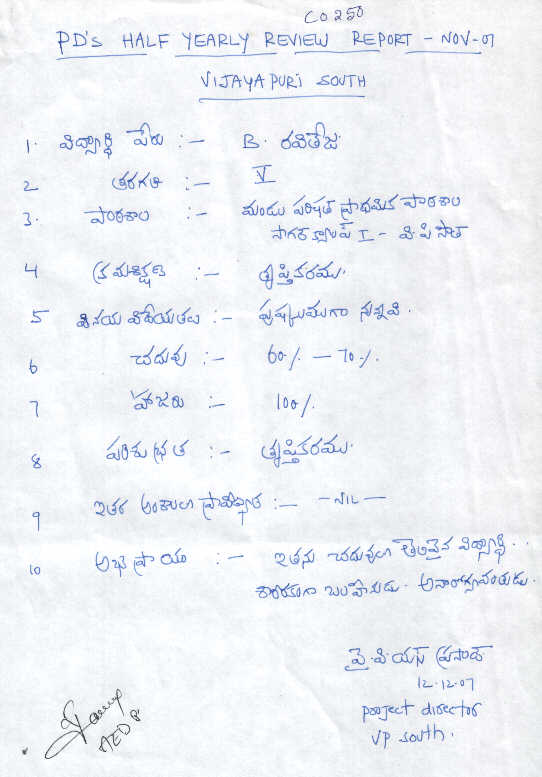 CO 250
PD's HALF YEARLY REVIEW REPORT - NOV-07
VIJAYAPURI SOUTH
1. విద్యార్థి పేరు :- B. రవితేజ
2 తరగతి :- V
3. పాఠశాల :- మండల పరిషత్ ప్రాథమిక పాఠశాల
సాగర్ క్యాంప్ I - వి.పి సౌత్
4 క్రమశిక్షణ :- తృప్తికరము.
5 వినయ విధేయతలు :- పుష్కలముగా నున్నవి.
6 చదువు :- 60% - 70%.
7 హాజరు :- 100%.
8 పరిశుభ్రత :- తృప్తికరము.
9 ఇతర అంశాలలో ప్రావీణ్యత :- - NIL -
10 అభిప్రాయం :- ఇతను చదువులో తెలివైన విద్యార్థి..
శారీరకంగా బలహీనుడు. అనారోగ్యవంతుడు.
వై.వి.యస్ ప్రసాద్
12.12.07
project director
VP south.
AED